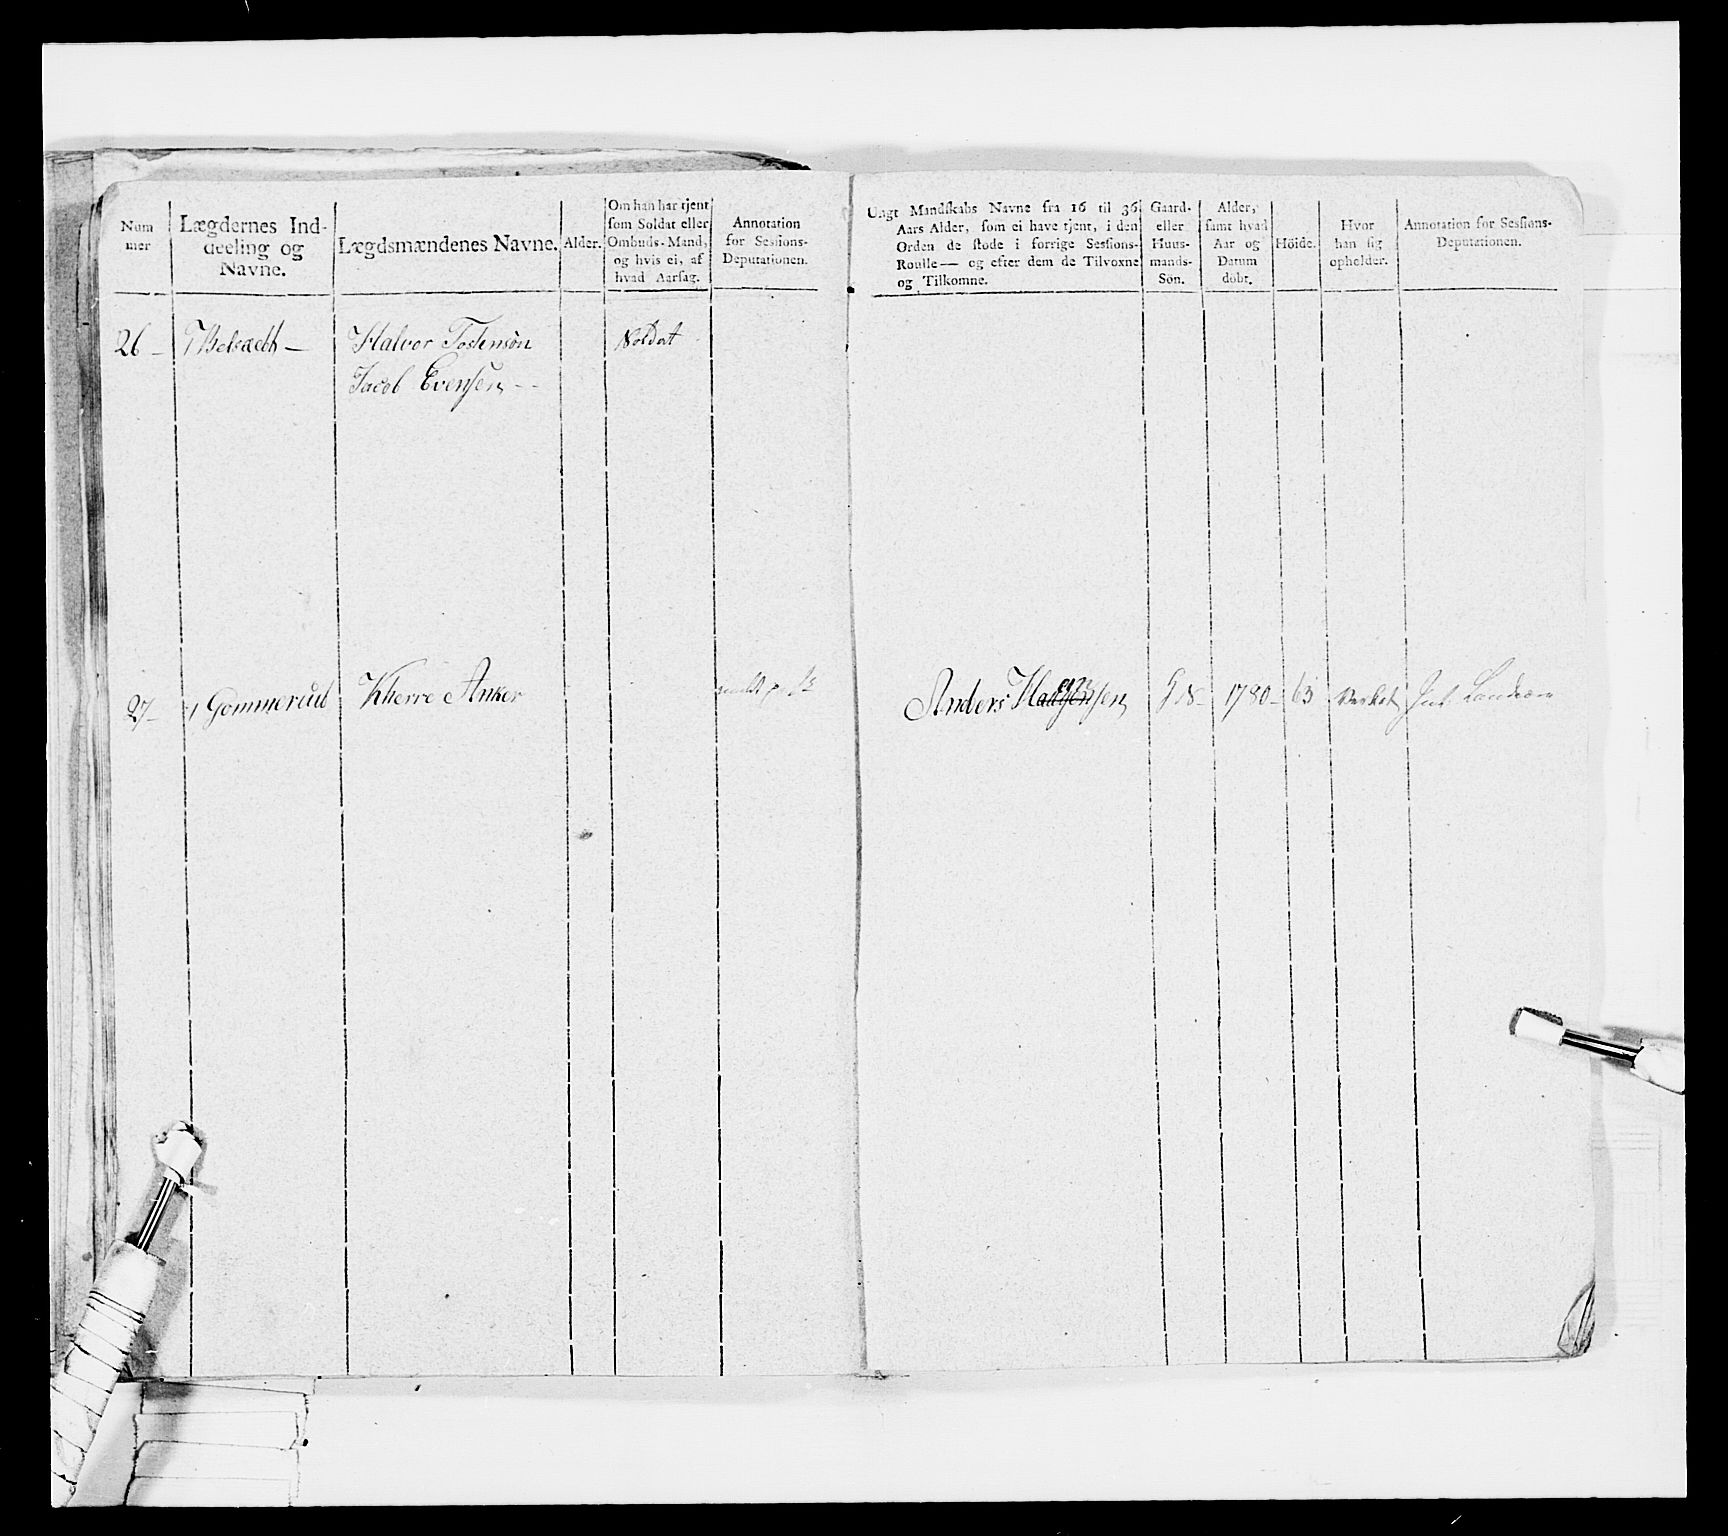 Num
mer
Lægdernes Ind-
deeling og
Navne.
Lægdsmændenes Navne.
Alder.
Om han har tjent
som Soldat eller
Ombuds-Mand,
og hvis ei, af
hvad Aarsag.
Annotation
for Sessions-
Deputationen.
Ungt Mandskabs Navne fra 16 til 36
Aars Alder, som ei have tjent, i den
Orden de stode i forrige Sessions-
Roulle— og efter dem de Tilvoxne
og Tilkomne.
Gaard-
eller
Huus-
mands-
Sön.
Alder,
samt hvad
Aar og
Datum
döbt.
Höide.
Hvor
han sig
opholder.
Annotation for Sessions-
Deputationen.
26 — Halvor Tostensön Soldat
Jacob Evensen --
27 — Gommerud Kherre Anker
Anders Hansen 1780 - 63 Verket